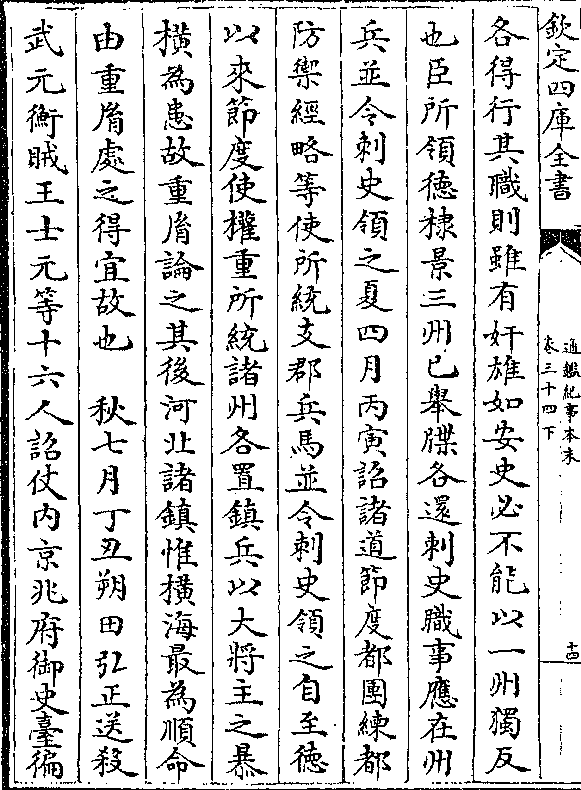 欽定四庫全書
通鑑紀事本末
卷三十四下
十四
各得行其職則雖有奸雄如安史必不能以一州獨反
也臣所領德棣景三州已舉牒各還刺史職事應在州
兵並令刺史領之夏四月丙寅詔諸道節度都團練都
防禦經略等使所統支郡兵馬並令刺史領之自至德
以來節度使權重所統諸州各置鎮兵以大將主之暴
橫為患故重胤論之其後河北諸鎮惟橫海最為順命
由重胤處之得宜故也　秋七月丁丑朔田弘正送殺
武元衡賊王士元等十六人詔仗内京兆府御史臺徧